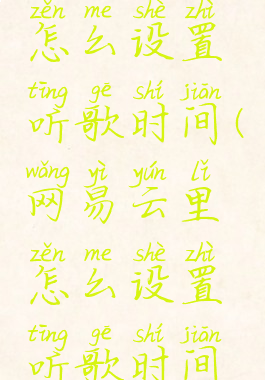 zěn me shè zhì
怎么设置
tīng gē shí jiān
听歌时间(
wǎng yì yún lǐ
网易云里
zěn me shè zhì
怎么设置
tīng gē shí jiān
听歌时间